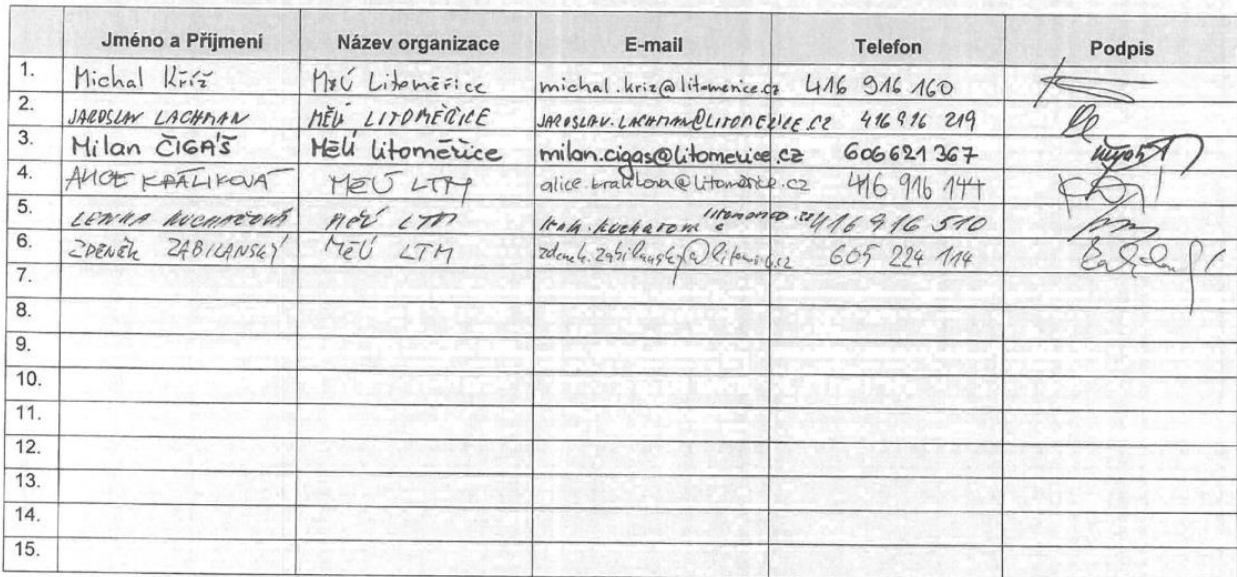 Jméno a Příjmení Název organizace E-mail Telefon Podpis
1. Michal Kříž MěÚ Litoměřice michal.kriz@litomerice.cz 416 916 160
2. JAROSLAV LACHMAN MĚÚ LITOMĚŘICE JAROSLAV.LACHMAN@LITOMERICE.CZ 416 916 219
3. Milan ČIGÁŠ MěÚ Litoměřice milan.cigas@litomerice.cz 606621367
4. ALICE KRÁLIKOVÁ MěÚ LTM alice.kralikova@litomerice.cz 416 916 144
5. LENKA KUCHAŘOVÁ MěÚ LTM 416 916 510
6. ZDENĚK ZABILANSKÝ MěÚ LTM 605 224 114
7.
8.
9.
10.
11.
12.
13.
14.
15.